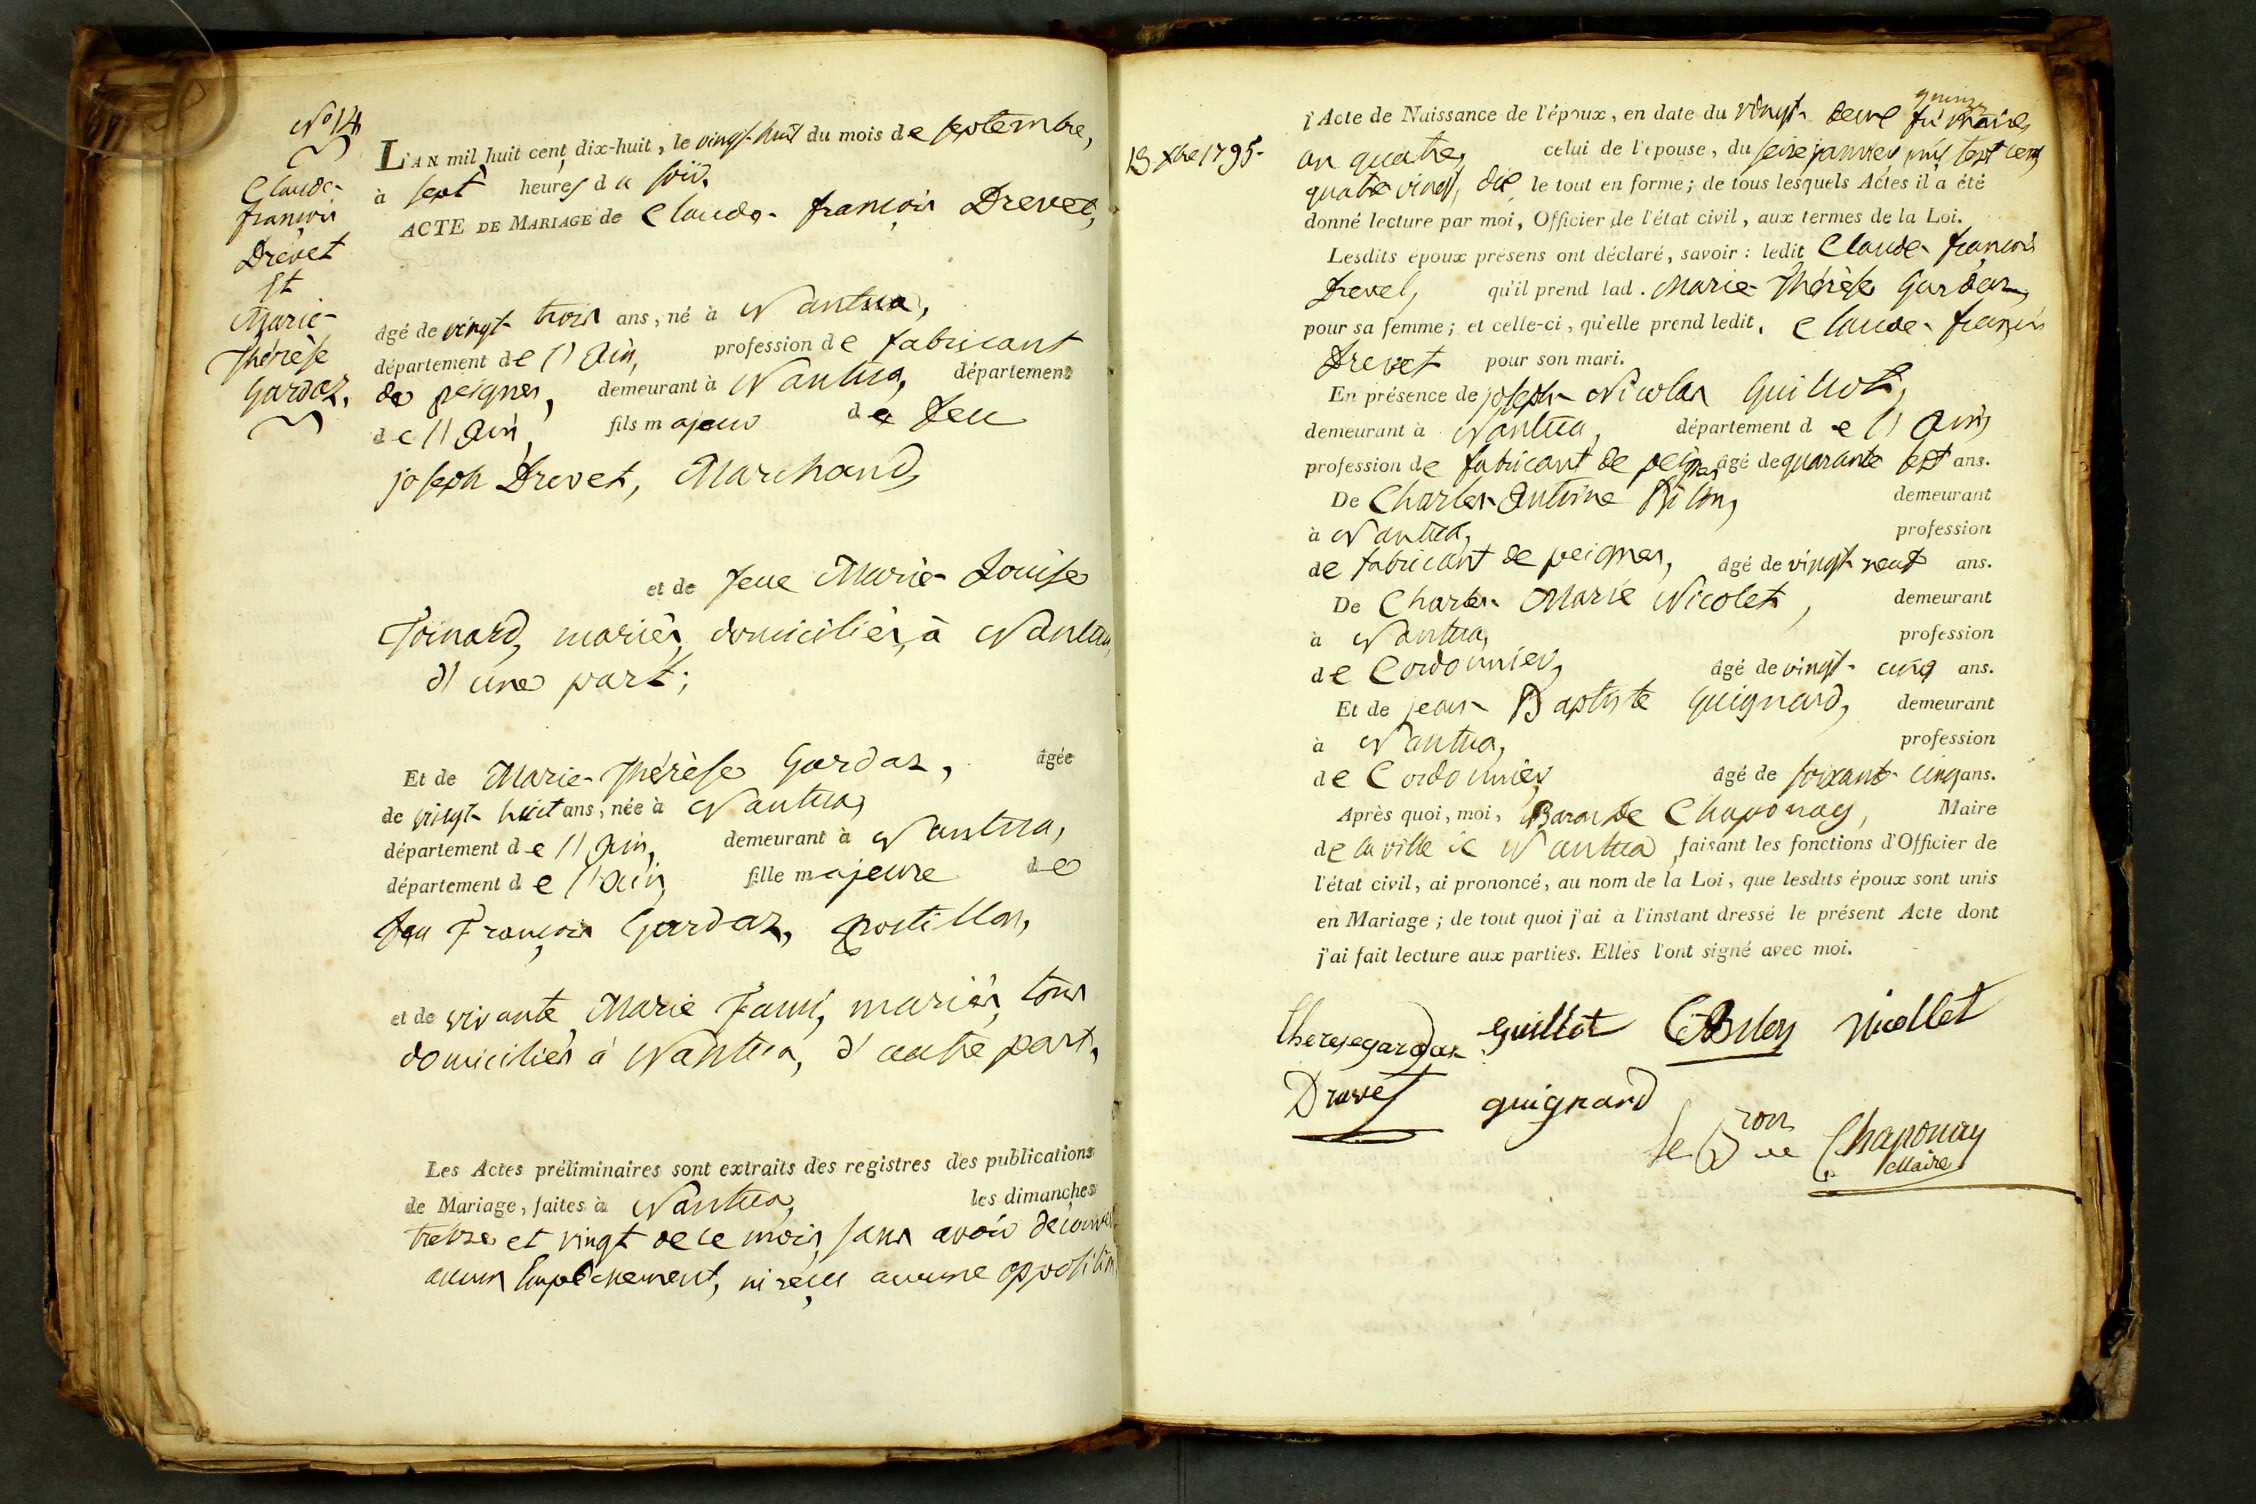 N.º 14
Claude-
françois
Drevet
Et
Marie-
Thérèse
Gardaz.
L'AN mil huit cent dix-huit, le vingt-huit du mois de septembre,
à sept heures du soir.
ACTE DE MARIAGE de Claude-françois Drevet,
âgé de vingt-trois ans, né à Nantua,
département de l'Ain, profession de fabricant
de peignes, demeurant à Nantua, département
de l'Ain, fils majeur de feu
joseph Drevet, Marchand,
et de feue Marie-Louise
Joinard, mariés, domiciliés à Nantua,
d'une part;
Et de Marie-Thérèse Gardaz, âgée
de vingt-huit ans, née à Nantua,
département de l'Ain, demeurant à Nantua,
département de l'Ain, fille majeure de
feu François Gardaz, postillon,
et de vivante Marie, mariés, tous
domiciliés à Nantua, d'autre part.
Les Actes préliminaires sont extraits des registres des publications
de Mariage, faites à Nantua, les dimanches
treize et vingt de ce mois, sans avoir découvert
aucun Empêchement, ni reçu aucune opposition
quinze
l'Acte de Naissance de l'époux, en date du vingt-deux frimaire
13 Xbre 1795.
an quatre, celui de l'épouse, du seize janvier mil sept cent
quatre vingt, dix, le tout en forme; de tous lesquels Actes il a été
donné lecture par moi, Officier de l'état civil, aux termes de la Loi.
Lesdits époux présens ont déclaré, savoir: ledit Claude-françois
Drevet, qu'il prend lad. Marie-Thérèse Gardaz,
pour sa femme; et celle-ci, qu'elle prend ledit. Claude-françois
Drevet pour son mari.
En présence de joseph-Nicolas Guillot,
demeurant à Nantua, département de l'Ain,
profession de fabricant de peignes, âgé de quarante sept ans.
De Charles-Antoine Bilon, demeurant
à Nantua, profession
de fabricant de peignes, âgé de vingt-neuf ans.
De Charles-Marie Nicolet, demeurant
à Nantua, profession
de Cordonnier, âgé de vingt-cinq ans.
Et de jean-Baptiste Guignard, demeurant
à Nantua, profession
de Cordonnier, âgé de soixante-cinq ans.
Après quoi, moi, Baron de Chaponay, Maire
de la ville de Nantua faisant les fonctions d'Officier de
l'état civil, ai prononcé, au nom de la Loi, que lesdits époux sont unis
en Mariage; de tout quoi j'ai à l'instant dressé le présent Acte dont
j'ai fait lecture aux parties. Elles l'ont signé avec moi.
therese gardaz Guillot CABilon Nicollet
Drevet guignard
le Bron de Chaponay
Maire